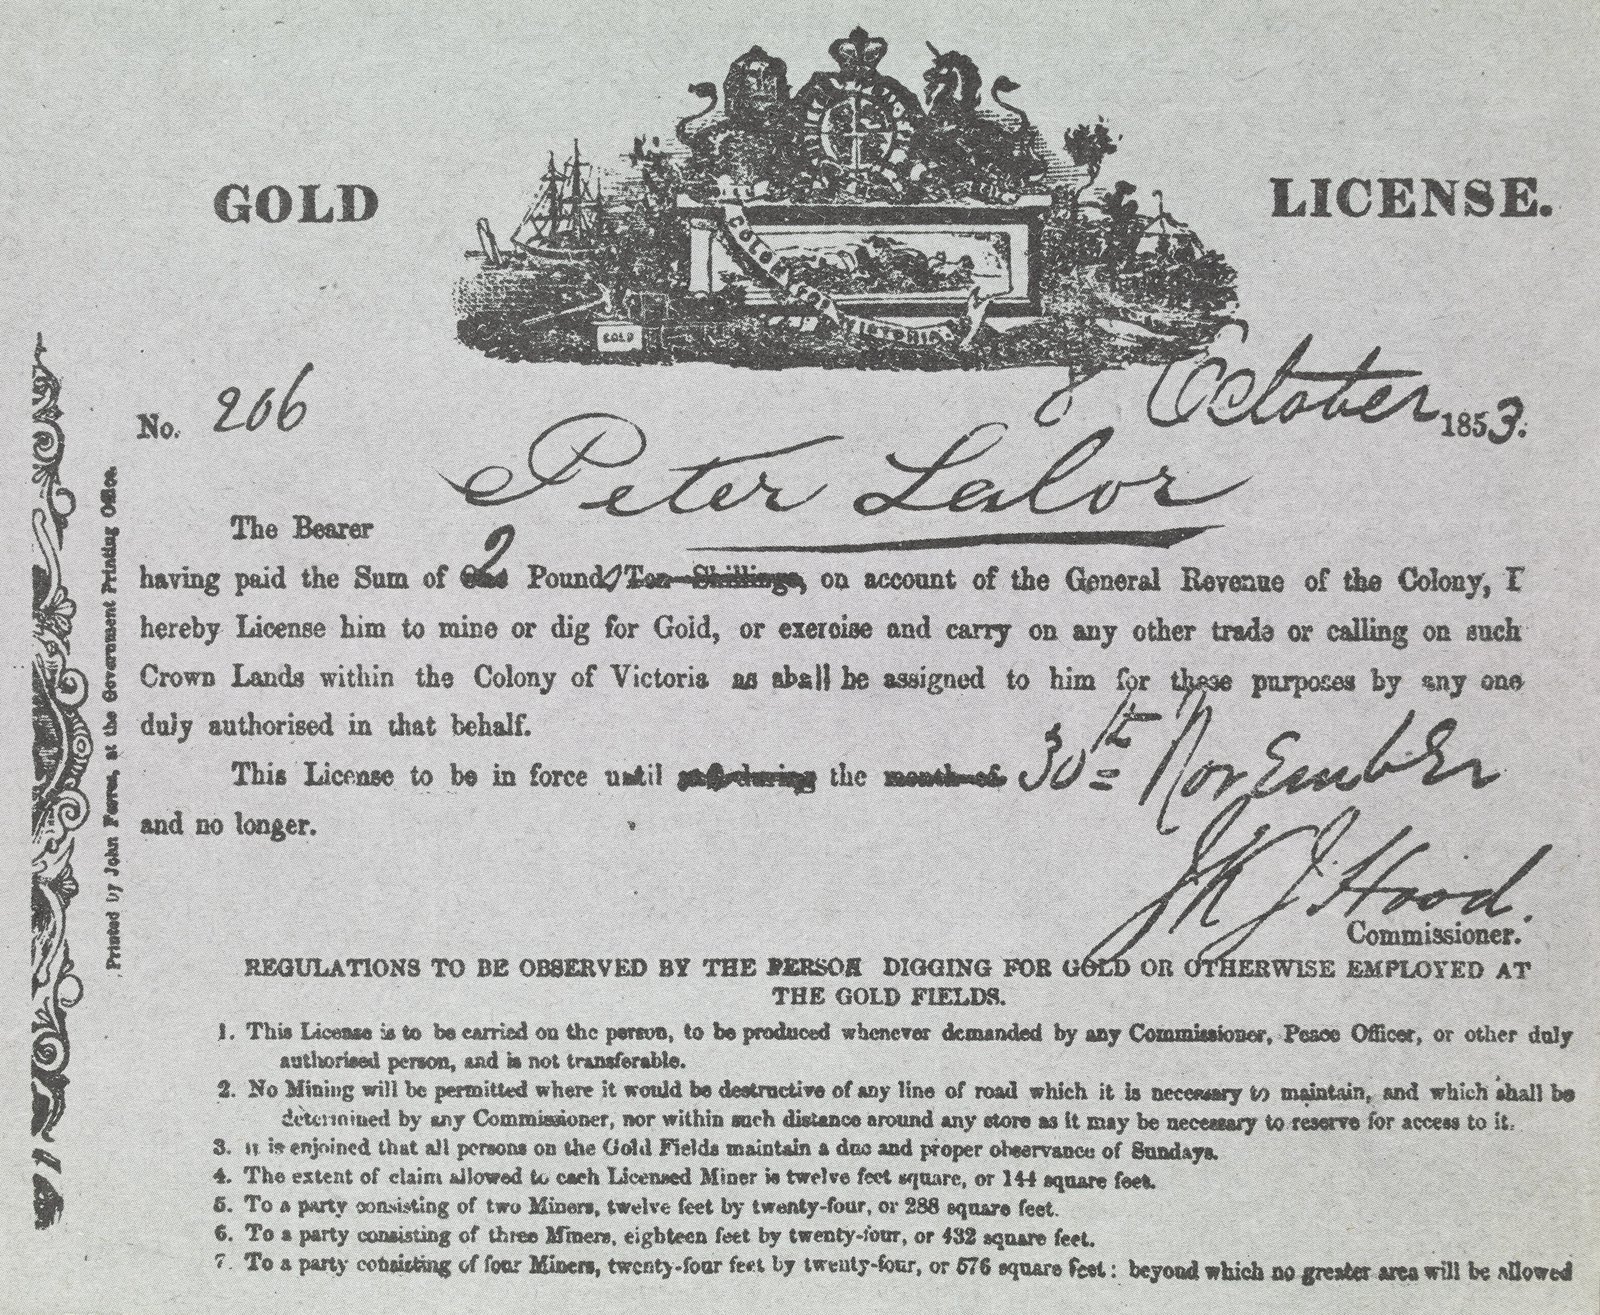 GOLD LICENSE.
COLONY OF VICTORIA
GOLD
No. 206
8 October 1853.
Peter Lalor
The Bearer
having paid the Sum of One 2 Pound, Ten Shillings, on account of the General Revenue of the Colony, I
hereby License him to mine or dig for Gold, or exercise and carry on any other trade or calling on such
Crown Lands within the Colony of Victoria as shall be assigned to him for these purposes by any one
duly authorised in that behalf.
This License to be in force until and during the month of 30th November
and no longer.
J K J Hood.
Commissioner.
REGULATIONS TO BE OBSERVED BY THE PERSON DIGGING FOR GOLD OR OTHERWISE EMPLOYED AT
THE GOLD FIELDS.
1. This License is to be carried on the person, to be produced whenever demanded by any Commissioner, Peace Officer, or other duly
authorised person, and is not transferable.
2. No Mining will be permitted where it would be destructive of any line of road which it is necessary to maintain, and which shall be
determined by any Commissioner, nor within such distance around any store as it may be necessary to reserve for access to it.
3. It is enjoined that all persons on the Gold Fields maintain a due and proper observance of Sundays.
4. The extent of claim allowed to each Licensed Miner is twelve feet square, or 144 square feet.
5. To a party consisting of two Miners, twelve feet by twenty-four, or 288 square feet.
6. To a party consisting of three Miners, eighteen feet by twenty-four, or 432 square feet.
7. To a party consisting of four Miners, twenty-four feet by twenty-four, or 576 square feet: beyond which no greater area will be allowed
Printed by John Ferres, at the Government Printing Office.